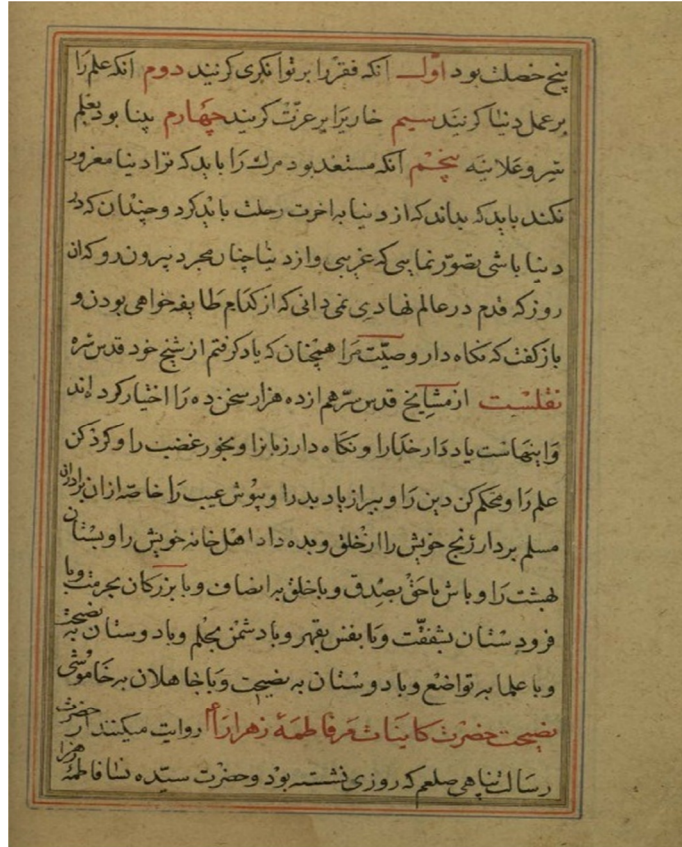 پنج خصلت بود اوّل انکه فقر را بر توانکری کزنید دوم انکه علم را
بر عمل دنیا کزنید سیم خاریرا بر عزّت کزیند چهارم بینا بود بعلم
سرّ و علانیه پنجم انکه مستعد بود مرك را باید که ترا دنیا مغرور
نکند باید که بداند که از دنیا به اخرت رحلت باید کرد و چندان که در
دنیا باشی تصوّر نمایی که غریبی و از دنیا چنان مجرد بیرون رو که ان
روز که قدم در عالم نهادی نمی دانی که از کدام طایفه خواهی بودن و
باز کفت که نکاه دار وصیّت مرا همچنان که یاد کرفتم از شیخ خود قدس سره
نقلست از مشایخ قدس سرّهم از ده هزار سخن ده را اختیار کرده اند
و اینهاست یاد دار خدارا و نکاه دار زبانرا و بخور غضب را و کرد کن
علم را و محکم کن دین را و بپراز یاد بد را و بپوش عیب را خاصّه از ان برادران
مسلم بردار رنج خویش را از خلق و بده داد اهل خانه خویش را و بستان
بهشت را و باش باحق بصدق و باخلق به انصاف و با بزرکان بحرمت و با
فرودستان بشفقّت و با نفس بقهر و با دشمن بحلم و با دوستان به نصیحت
و با علما به تواضع و با دوستان به نصیحت و با جاهلان به خاموشی
نصیحت حضرت کاینات مر فاطمهٔ زهرا را روایت میکنند از حضرت
رسالت پناهی صلعم که روزی نشسته بود و حضرت سیّده نسا فاطمهٔ زهرا